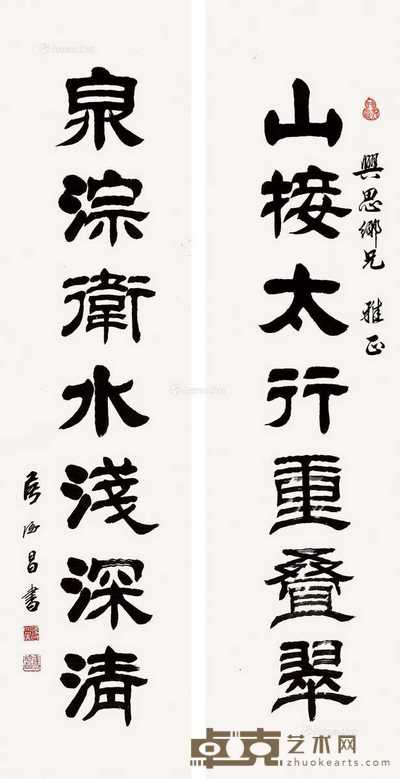 興思鄉兄 雅正
山接太行重叠翠
泉淙衛水淺深清
侯德昌書
卓克艺术网
zhuokearts.com